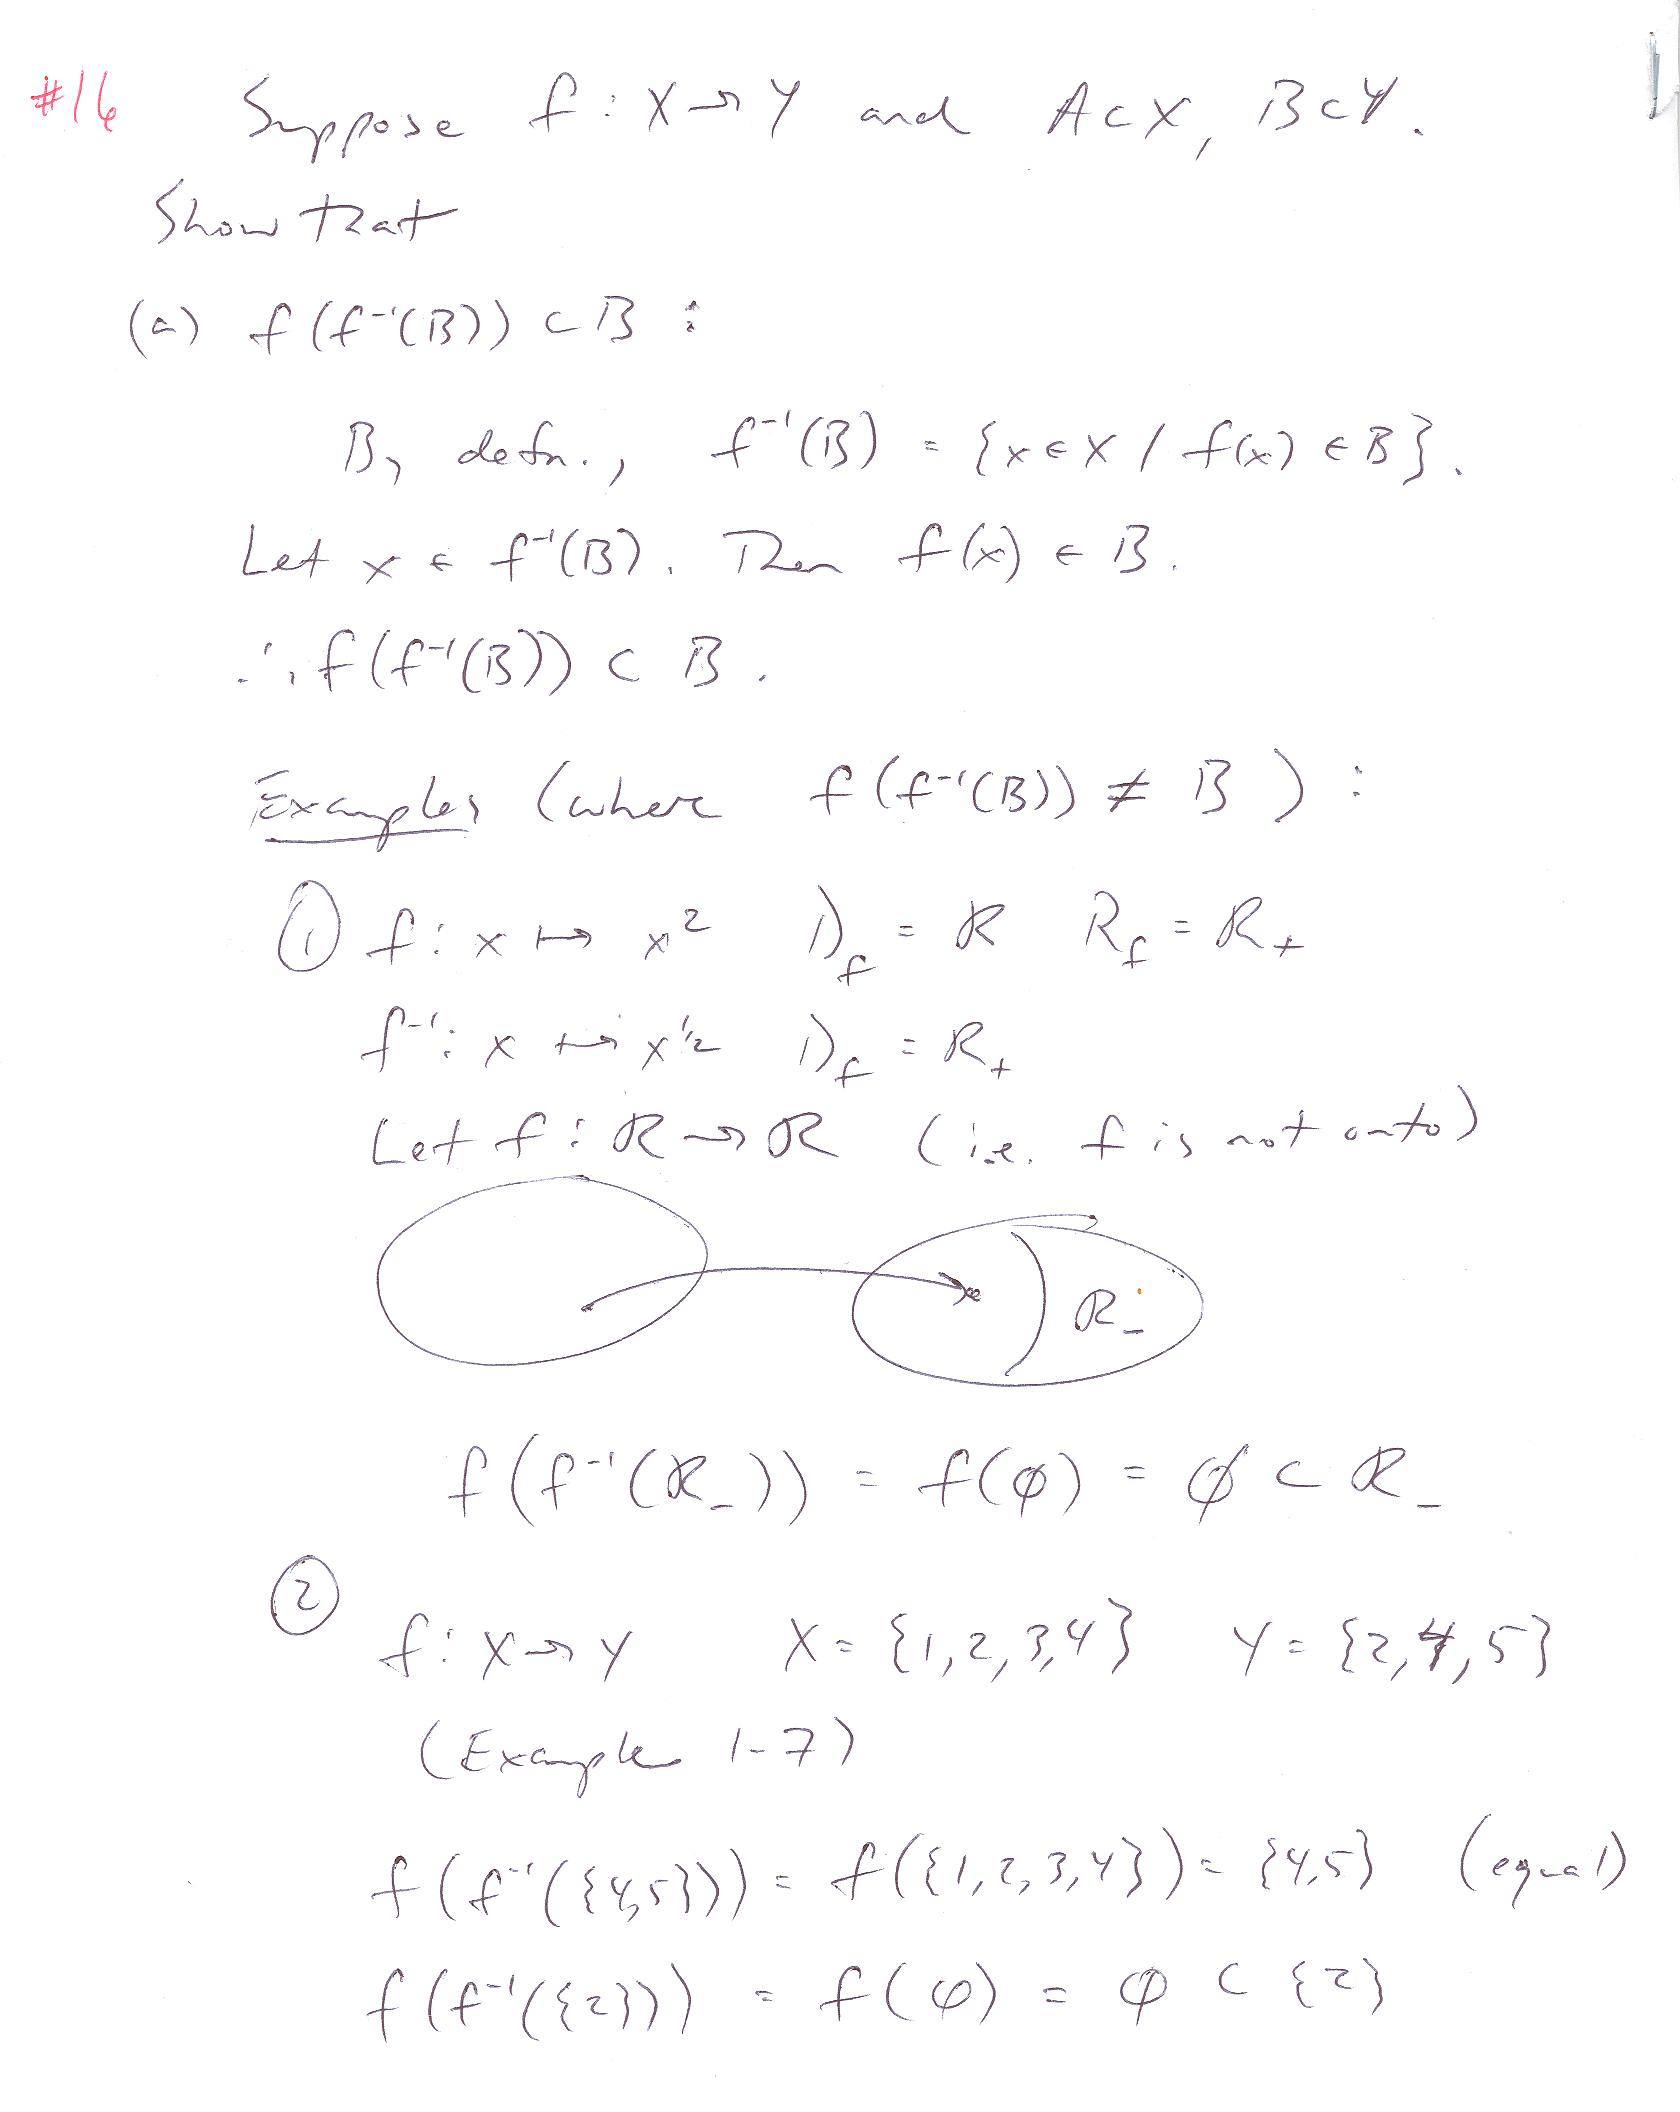 #16 Suppose f : X → Y and A ⊂ X, B ⊂ Y.
Show that
(a) f(f⁻¹(B)) ⊂ B :
By defn., f⁻¹(B) = {x ∈ X / f(x) ∈ B}.
Let x ∈ f⁻¹(B). Then f(x) ∈ B.
∴ f(f⁻¹(B)) ⊂ B.
Examples (where f(f⁻¹(B)) ≠ B) :
① f : x ↦ x² D_f = R R_f = R₊
f⁻¹ : x ↦ x^½ D_f = R₊
Let f : R → R (i.e. f is not onto)
R₋
f(f⁻¹(R₋)) = f(φ) = φ ⊂ R₋
②
f : X → Y X = {1,2,3,4} Y = {2,4,5}
(Example 1-7)
f(f⁻¹({4,5})) = f({1,2,3,4}) = {4,5} (equal)
f(f⁻¹({2})) = f(φ) = φ ⊂ {2}